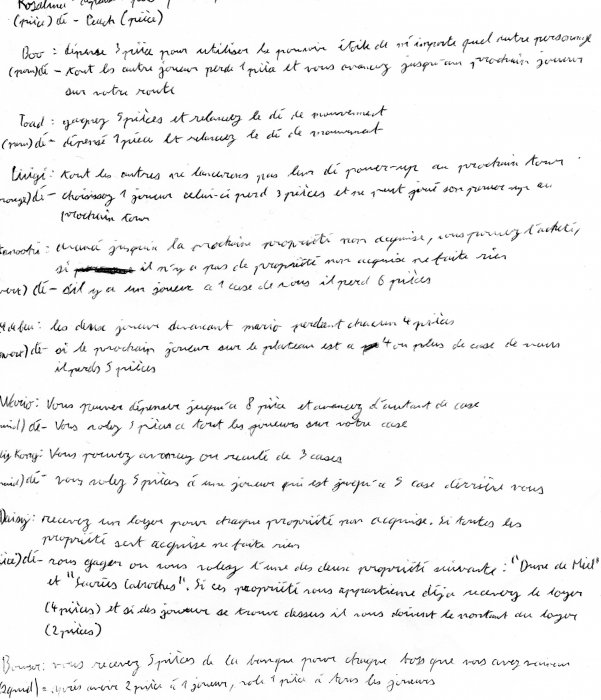 Rosalina - dépense
(pièce) dé - Coach (pièce)
Boo : dépense 3 pièce pour utiliser le pouvoir étoile de n'importe quel autre personnage
dé - tout les autre joueur perde 1 pièce et vous avancez jusqu'au prochain joueur
sur votre route
Toad : gagnez 5 pièces et relancez le dé de mouvement
dé - dépensé 1 pièce et relancez le dé de mouvement
Luigi : tout les autres ne lancerons pas leur dé power-up au prochain tour
rouge) dé - choisissez 1 joueur celui-ci perd 3 pièces et ne peut joué son power-up au
prochain tour
anooki : avancé jusqu'a la prochaine propriété non acquise, vous pouvez l'acheté,
si il n'y a pas de propriété non acquise ne faite rien
vert) dé - s'il y a un joueur a 1 case de vous il perd 6 pièces
les deux joueur devancant mario perdent chacun 4 pièces
dé - si le prochain joueur sur le plateau est a 4 ou plus de case de vous
il perds 5 pièces
Wario : Vous pouvez dépenser jusqu'a 8 pièce et avancez d'autant de case
dé - Vous volez 3 pièces a tout les joueurs sur votre case
Kong : Vous pouvez avancez ou reculé de 3 cases
dé - vous volez 5 pièces à une joueur qui est jusqu'a 5 case derrière vous
Daisy : recevez un loyer pour chaque propriété non acquise. Si toutes les
propriété sont acquise ne faite rien
dé - vous gagner ou vous volez l'une des deux propriété suivante : "Dune de Miel"
et "Sucrées Cabroches". Si ces propriété vous appartienne déja recevez le loyer
(4 pièces) et si des joueur se trouve dessus il vous doivent le montant du loyer
(2 pièces)
Bowser : vous recevez 5 pièces de la banque pour chaque boss que vous avez vaincu
2 pièce à 1 joueur, vole 1 pièce à tous les joueurs